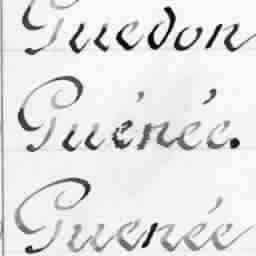 Guedon
Guénée.
Guenée